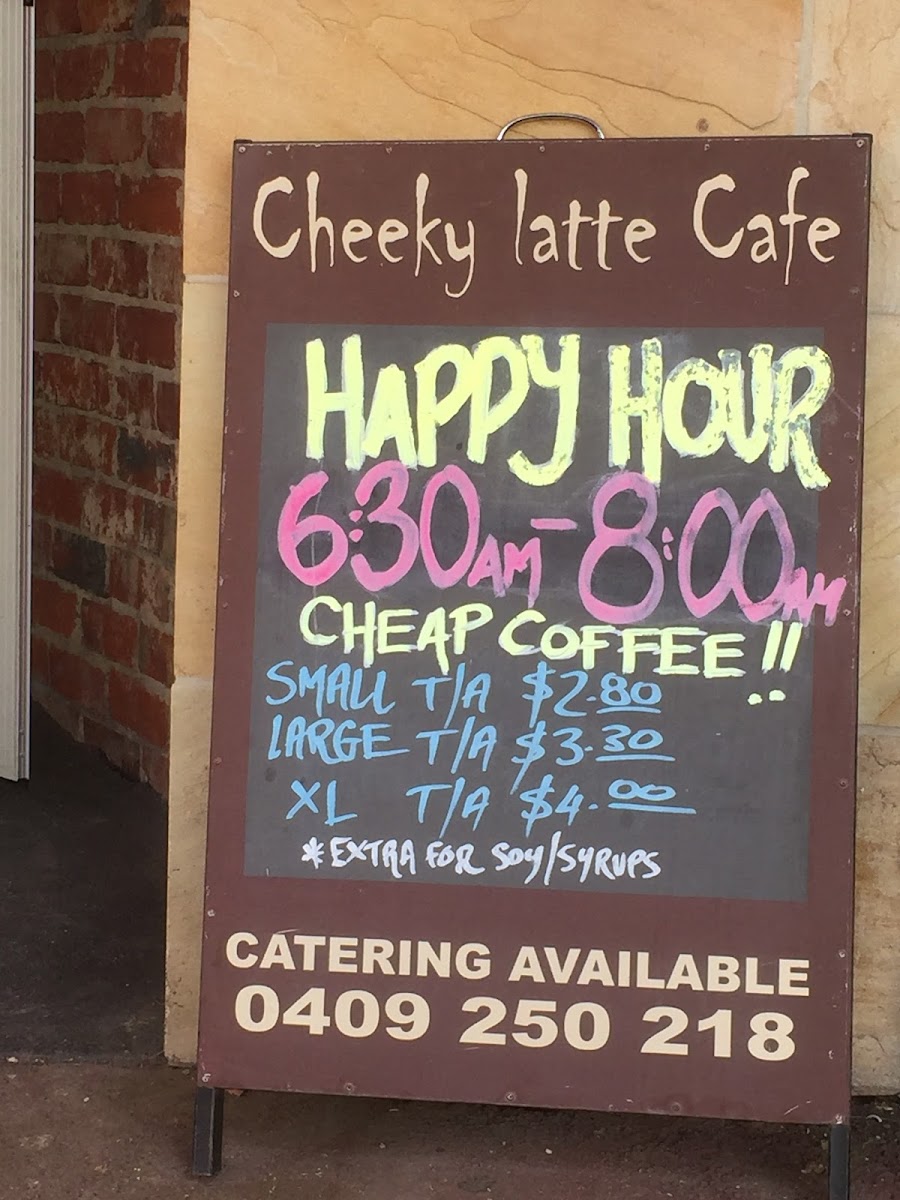 Cheeky latte Cafe
HAPPY HOUR
6:30AM - 8:00AM
CHEAP COFFEE !!
SMALL T/A $2.80
LARGE T/A $3.30
XL T/A $4.00
*EXTRA FOR SOY/SYRUPS
CATERING AVAILABLE
0409 250 218